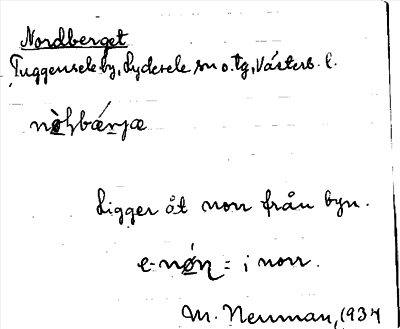 Nordberget
Tuggensele by, Lycksele sn o. tg, Västerb. l.
nòɫbǽrjæ
Ligger åt norr från byn.
= i norr.
M. Neuman, 1937